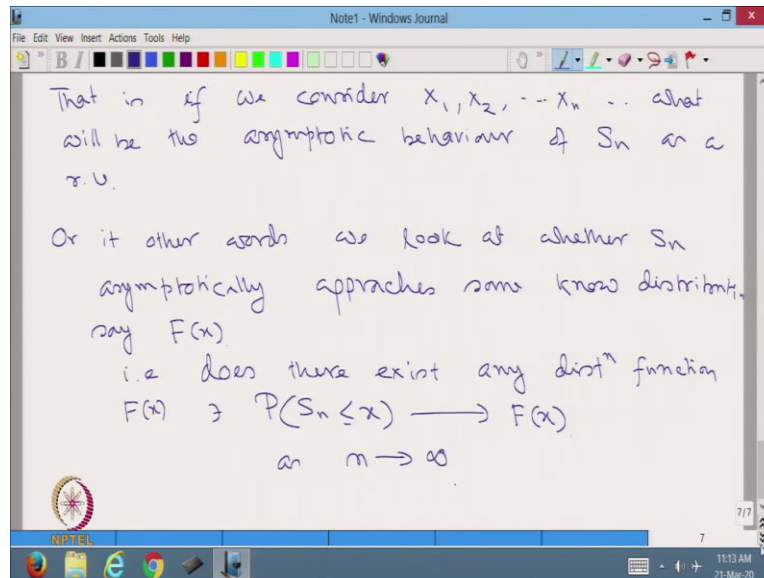 Note1 - Windows Journal
File Edit View Insert Actions Tools Help
That is if we consider X₁, X₂, -- Xₙ .. what
will be the asymptotic behaviour of Sₙ as a
r.v.
Or it other words we look at whether Sₙ
asymptotically appraches some know distributn.
say F(x)
i.e does there exist any distⁿ function
F(x) ∋ P(Sₙ ≤ x) ⟶ F(x)
as n → ∞
7/7
NPTEL
7
11:13 AM
21-Mar-20